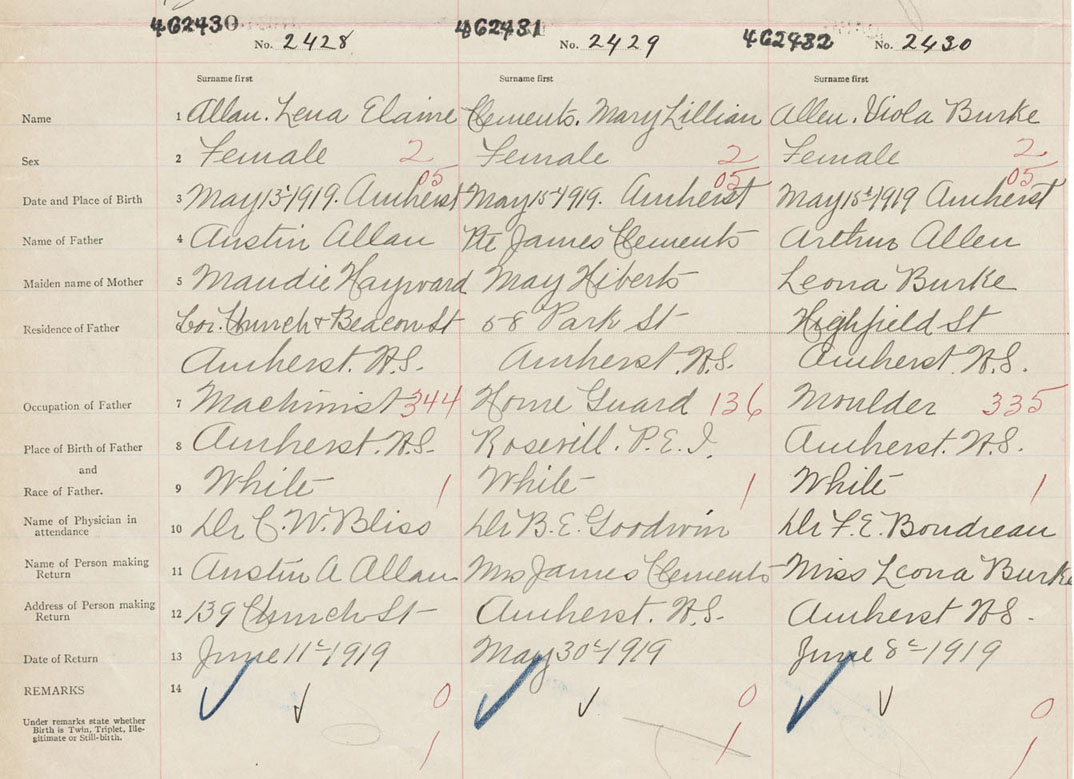 462430 462431 462432
No. 2428 No. 2429 No. 2430
Surname first Surname first Surname first
Name 1 Allan. Lena Elaine Clements. Mary Lillian Allen. Viola Burke
Sex 2 Female 2 Female 2 Female 2
05 05 05
Date and Place of Birth 3 May 13th 1919. Amherst May 15th 1919. Amherst May 18th 1919 Amherst
Name of Father 4 Austin Allan Pte James Clements Arthur Allen
Maiden name of Mother 5 Maudie Hayward May Hiberts Leona Burke
Residence of Father Cor. Church & Beacon St 58 Park St Highfield St
Amherst. N.S. Amherst. N.S. Amherst N.S.
Occupation of Father 7 Machinist 344 Home Guard 136 Moulder 335
Place of Birth of Father 8 Amherst. N.S. Rosevill. P.E.I. Amherst. N.S.
and
Race of Father. 9 White 1 White 1 White 1
Name of Physician in attendance 10 Dr C. W. Bliss Dr B. E. Goodwin Dr F. E. Boudreau
Name of Person making Return 11 Austin A Allan Mrs James Clements Miss Leona Burke
Address of Person making Return 12 139 Church St Amherst. N.S. Amherst N.S.
Date of Return 13 June 11th 1919 May 30th 1919 June 8th 1919
REMARKS 14 0 0 0
Under remarks state whether
Birth is Twin, Triplet, Ille-
gitimate or Still-birth.
1 1 1